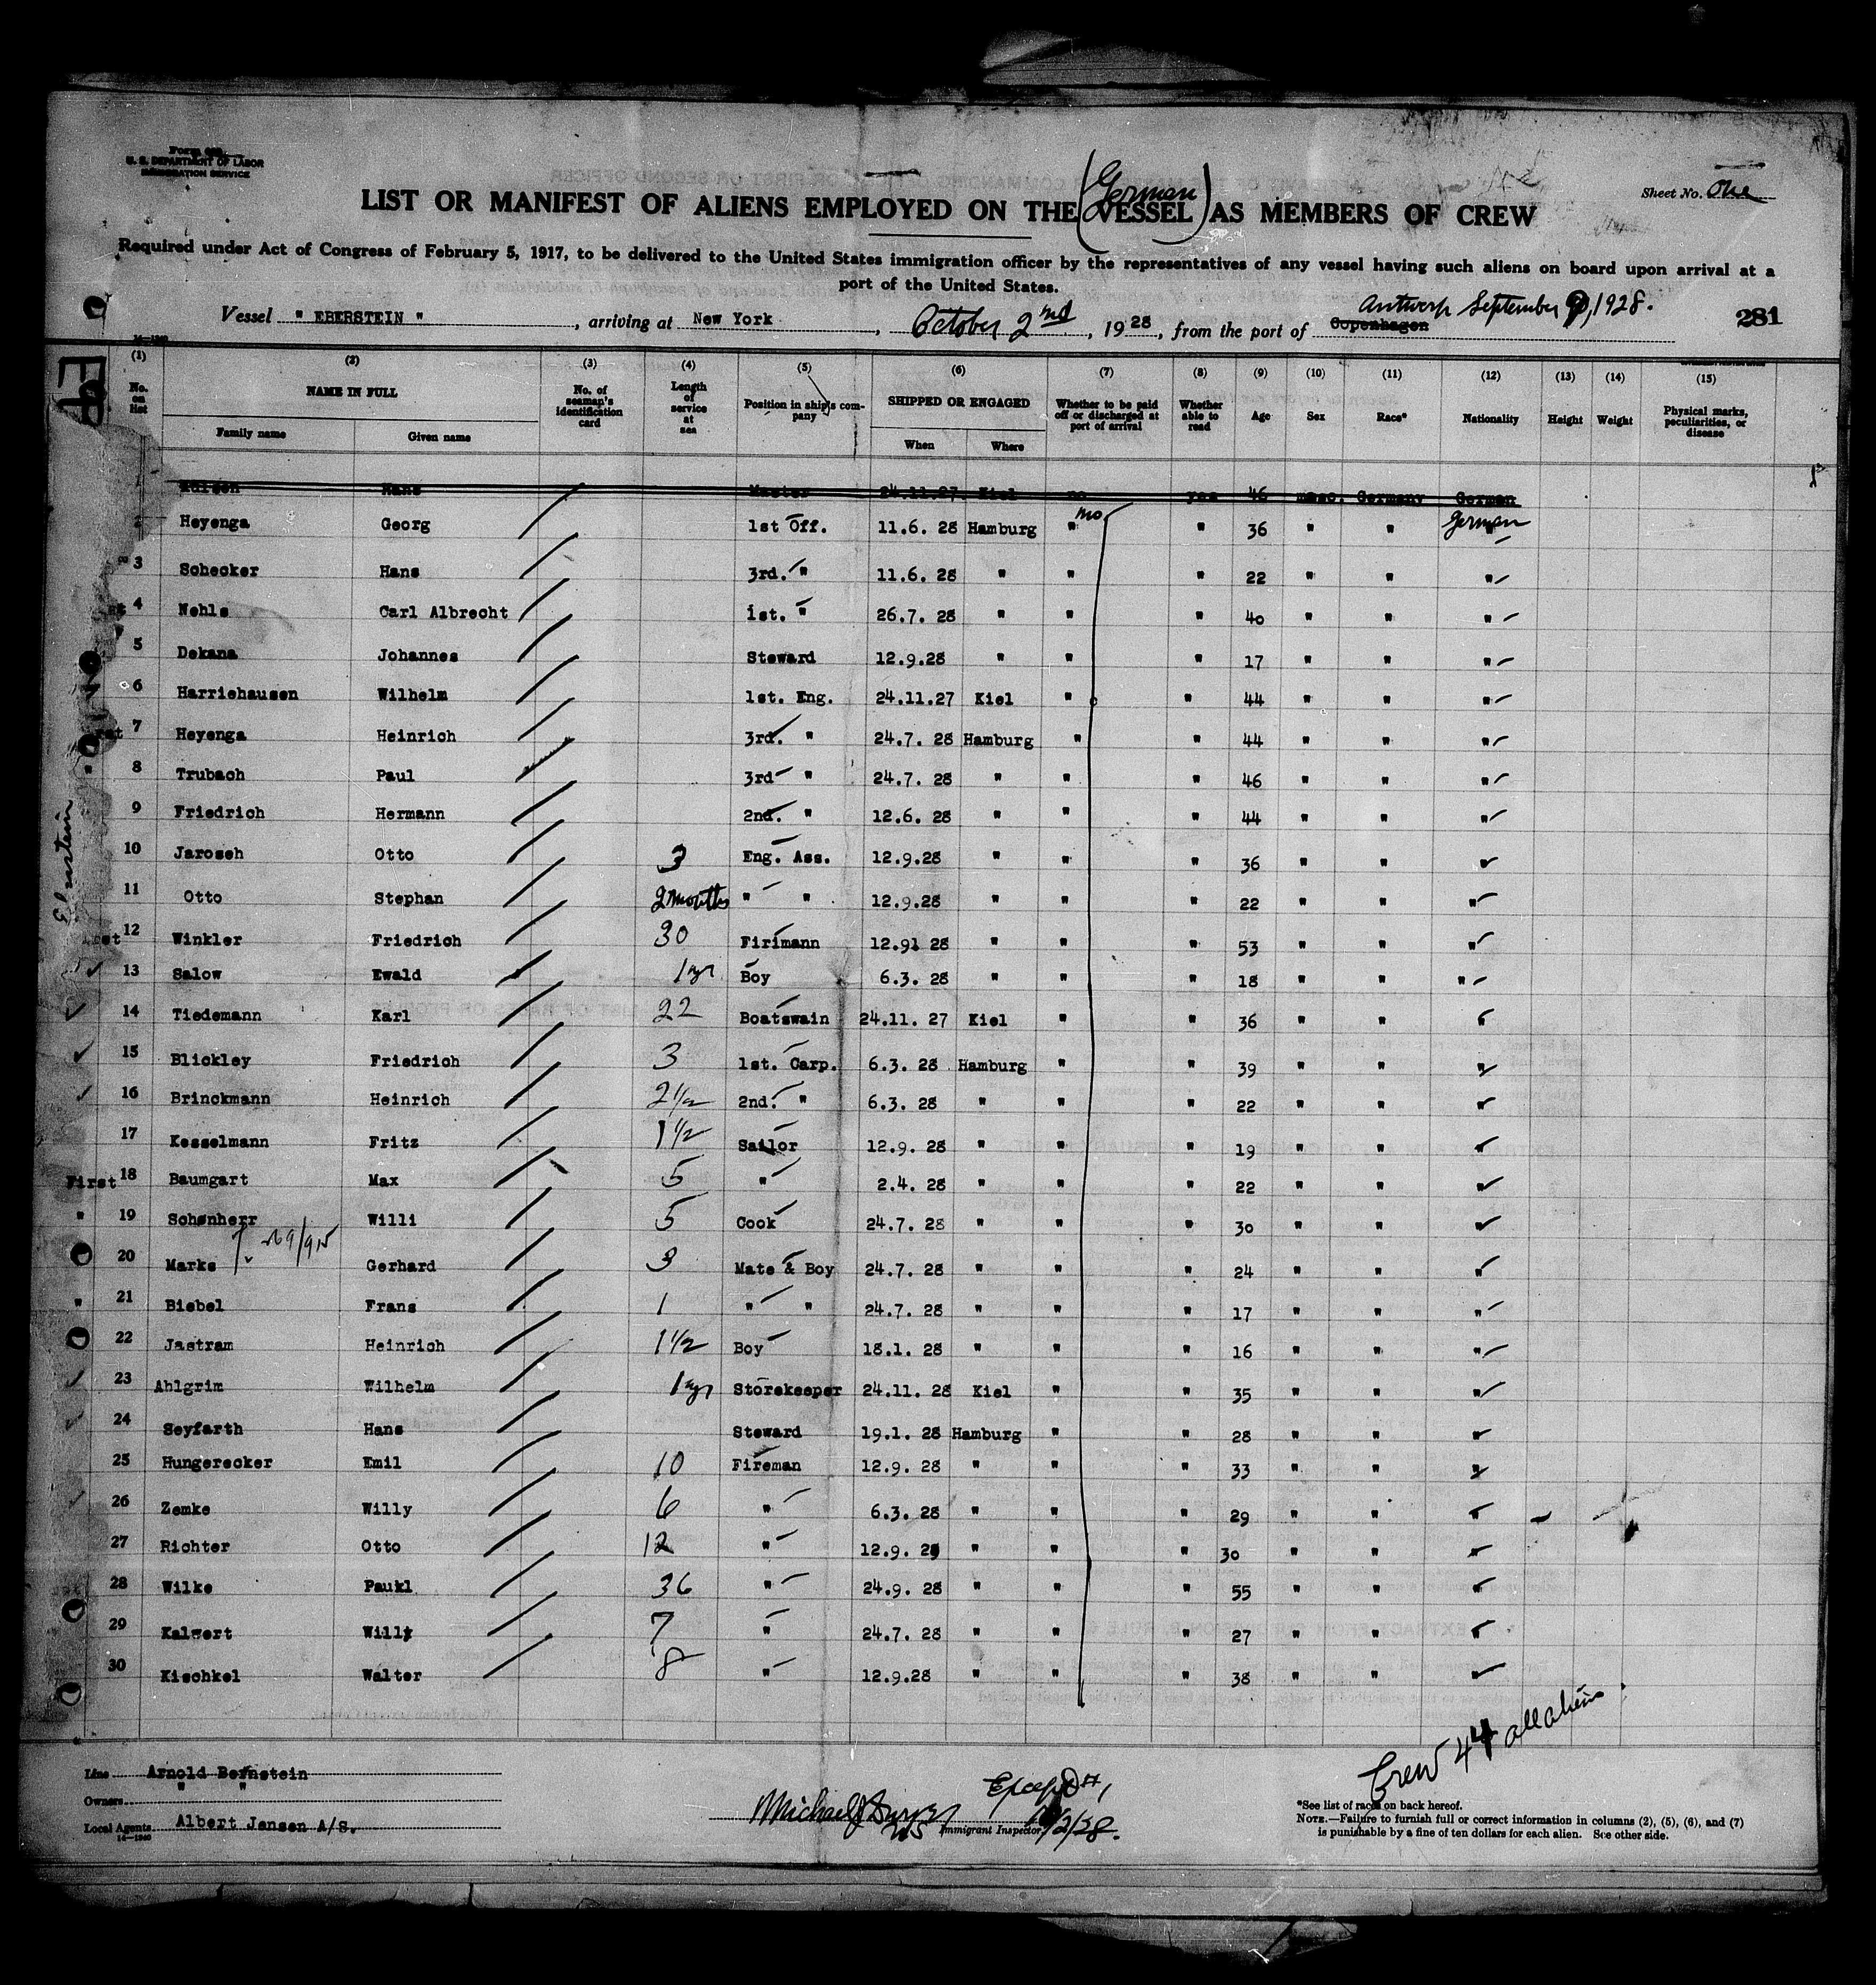 U. S. DEPARTMENT OF LABOR
IMMIGRATION SERVICE
Sheet No. One
(German)
LIST OR MANIFEST OF ALIENS EMPLOYED ON THE VESSEL AS MEMBERS OF CREW
Required under Act of Congress of February 5, 1917, to be delivered to the United States immigration officer by the representatives of any vessel having such aliens on board upon arrival at a
port of the United States.
Antwerp September 1928.
Vessel " EBERSTEIN ", arriving at New York, October 2nd, 1928, from the port of Copenhagen
281
(1) (2) (3) (4) (5) (6) (7) (8) (9) (10) (11) (12) (13) (14) (15)
No. on list NAME IN FULL Family name Given name No. of seaman's identification card Length of service at sea Position in ship's company SHIPPED OR ENGAGED When Where Whether to be paid off or discharged at port of arrival Whether able to read Age Sex Race* Nationality Height Weight Physical marks, peculiarities, or disease
Hans Master 24.11.27. Kiel no yes 46 masc. Germany German
Heyenga Georg 1st Off. 11.6. 28 Hamburg " no " 36 " " German
3 Schecker Hans 3rd. " 11.6. 28 " " " 22 " " "
4 Nehls Carl Albrecht 1st. " 26.7. 28 " " " 40 " " "
5 Dekana Johannes Steward 12.9.28 " " " 17 " " "
6 Harriehausen Wilhelm 1st. Eng. 24.11.27 Kiel " " 44 " " "
7 Heyenga Heinrich 3rd. " 24.7. 28 Hamburg " " 44 " " "
" 8 Trubach Paul 3rd " 24.7. 28 " " " 46 " " "
9 Friedrich Hermann 2nd. " 12.6. 28 " " " 44 " " "
10 Jaroseh Otto 3 Eng. Ass. 12.9.28 " " " 36 " " "
11 Otto Stephan 2 months " " 12.9.28 " " " 22 " " "
12 Winkler Friedrich 30 Firimann 12.91 28 " " " 53 " " "
13 Salow Ewald 1 yr Boy 6.3. 28 " " " 18 " " "
14 Tiedemann Karl 22 Boatswain 24.11. 27 Kiel " " 36 " " "
15 Blickley Friedrich 3 1st. Carp. 6.3. 28 Hamburg " " 39 " " "
16 Brinckmann Heinrich 2 1/2 2nd. " 6.3. 28 " " " 22 " " "
17 Kesselmann Fritz 1 1/2 Sailor 12.9. 28 " " " 19 " " "
First 18 Baumgart Max 5 " 2.4. 28 " " " 22 " " "
" 19 Schønherr Willi 5 Cook 24.7. 28 " " " 30 " " "
20 Marks Gerhard 3 Mate & Boy 24.7. 28 " " " 24 " " "
" 21 Biebel Frans 1 " " 24.7. 28 " " " 17 " " "
22 Jastram Heinrich 1 1/2 Boy 18.1. 28 " " " 16 " " "
23 Ahlgrim Wilhelm 1 yr Storekeeper 24.11. 28 Kiel " " 35 " " "
24 Seyfarth Hans Steward 19.1. 28 Hamburg " " 28 " " "
25 Hungerecker Emil 10 Fireman 12.9. 28 " " " 33 " " "
26 Zemke Willy 6 " 6.3. 28 " " " 29 " " "
27 Richter Otto 12 " 12.9. 28 " " " 30 " " "
28 Wilke Paukl 36 " 24.9. 28 " " " 55 " " "
29 Kalwert Willy 7 " 24.7. 28 " " " 27 " " "
30 Kischkel Walter 8 " 12.9.28 " " " 38 " " "
Eberstein
Crew 44 all aliens
Line Arnold Bernstein
Owners " "
Local Agents Albert Jensen A/S.
14—1940
Except #1
Immigrant Inspector 10/2/28.
*See list of races on back hereof.
NOTE.—Failure to furnish full or correct information in columns (2), (5), (6), and (7)
is punishable by a fine of ten dollars for each alien. See other side.